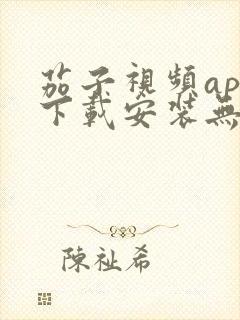 茄子視頻ap
下載安装無
陳祉希